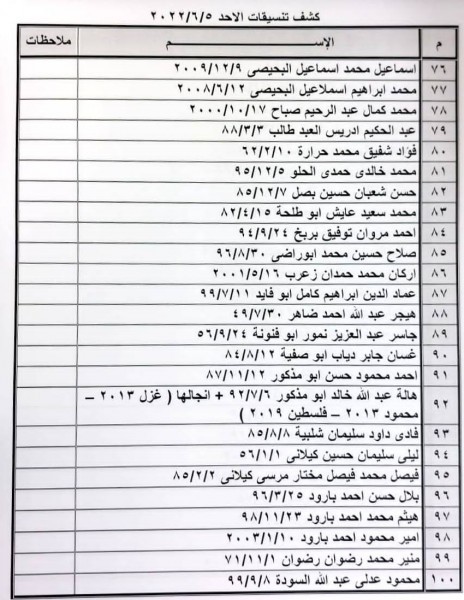 كشف تنسيقات الاحد ٢٠٢٢/٦/٥
م الإســـــــم ملاحظات
٧٦ اسماعيل محمد اسماعيل البحيصى ٢٠٠٩/١٢/٩
٧٧ محمد ابراهيم اسملاعيل البحيصى ٢٠٠٨/٦/١٢
٧٨ محمد كمال عبد الرحيم صباح ٢٠٠٠/١٠/١٧
٧٩ عبد الحكيم ادريس العبد طالب ٨٨/٣/٣
٨٠ فؤاد شفيق محمد حرارة ٦٢/٢/١٠
٨١ محمد خالدى حمدى الحلو ٩٥/١٢/٥
٨٢ حسن شعبان حسين بصل ٨٥/١٢/٧
٨٣ محمد سعيد عايش ابو طلحة ٨٢/٤/١٥
٨٤ احمد مروان توفيق بربخ ٩٤/٩/٢٤
٨٥ صلاح حسين محمد ابوراضى ٩٦/٨/٣٠
٨٦ اركان محمد حمدان زعرب ٢٠٠١/٥/١٦
٨٧ عماد الدين ابراهيم كامل ابو فايد ٩٩/٧/١١
٨٨ هيجر عبد الله احمد ضاهر ٤٩/٧/٣٠
٨٩ جاسر عبد العزيز نمور ابو فنونة ٥٦/٩/٢٤
٩٠ غسان جابر دياب ابو صفية ٨٤/٨/١٢
٩١ احمد محمود حسن ابو مذكور ٨٧/١١/١٢
٩٢ هالة عبد الله خالد ابو مذكور ٩٢/٧/٦ + انجالها ( غزل ٢٠١٣ –
محمود ٢٠١٣ – فلسطين ٢٠١٩ )
٩٣ فادى داود سليمان شلبية ٨٥/٨/٨
٩٤ ليلى سليمان حسين كيلانى ٥٦/١/١
٩٥ فيصل محمد فيصل مختار مرسى كيلانى ٨٥/٢/٢
٩٦ بلال حسن احمد بارود ٩٦/٣/٢٥
٩٧ هيثم محمد احمد بارود ٩٨/١١/٢٣
٩٨ امير محمود احمد بارود ٢٠٠٣/١/١٠
٩٩ منير محمد رضوان رضوان ٧١/١١/١
١٠٠ محمود عدلى عبد الله السودة ٩٩/٩/٨